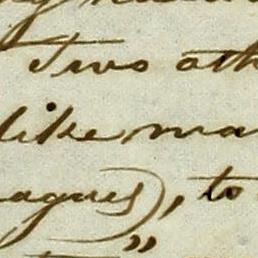 Two oth
like ma
agues), to
"